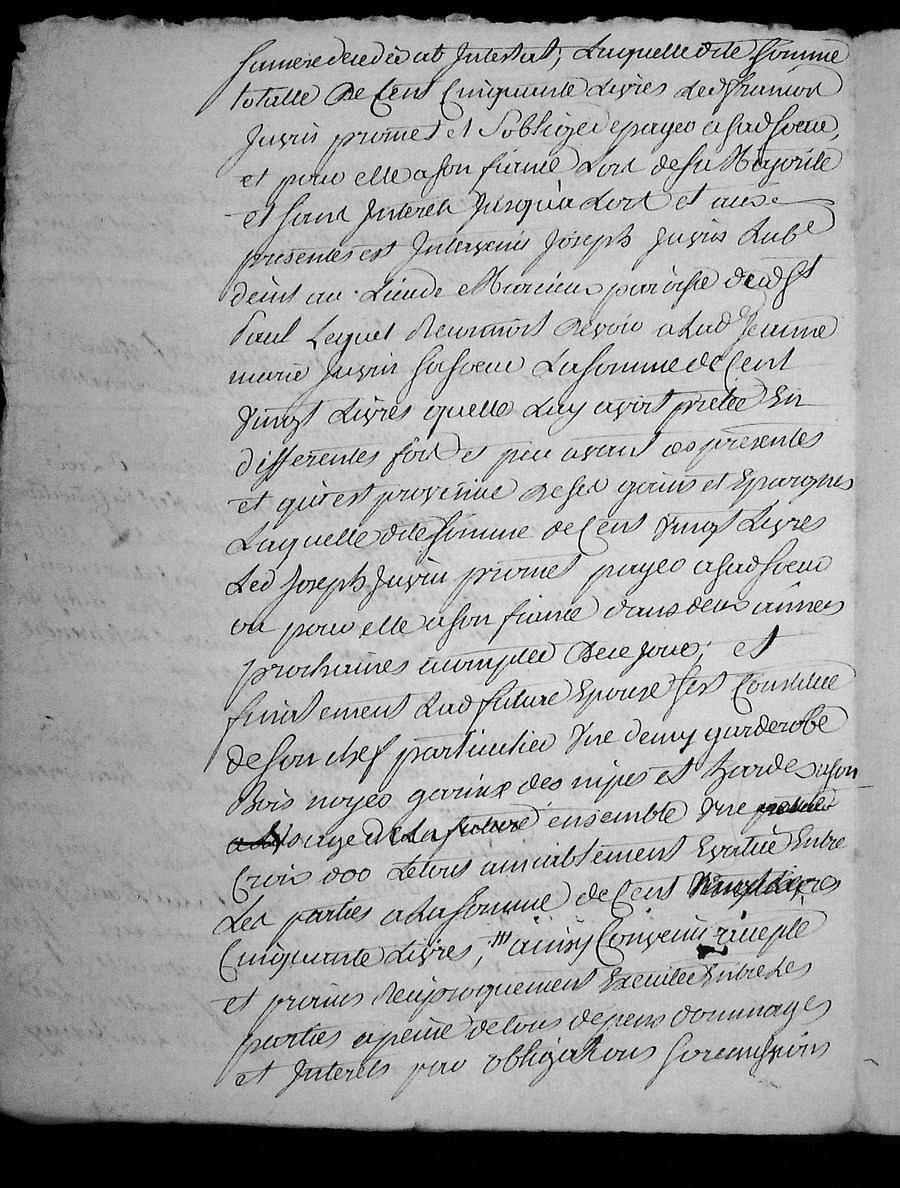 sa mere decedée ab Intestat, Laquelle dite somme
totalle De Cent Cinquante Livres Led
Juvin promet et s'oblige de payer a sad soeur,
et pour elle a son fiancé Lors de sa Majorité
et sans Interets Jusqu'a Lors et aux
presentes est Intervenu Joseph Juvin
au Lieu de paroisse dud St
Paul Lequel Reconnoit Devoir a Lad Jeanne
marie Juvin sa soeur La somme de Cent
Vingt Livres quelle Luy avoit pretée En
differentes fois et peu avant ces presentes
et qui est provenüe De ses gains et Epargnes
Laquelle dite somme de Cent Vingt Livres
Led Joseph Juvin promet payer a sad soeur
ou pour elle a son fiancé dans deux années
prochaines a compter De ce Jour; et
finalement Lad future Epouse s'est Constituée
de son chef particulier Une demy garderobe
Bois noyer garnie des nipes et hardes a son
usage De La future ensemble Une
Croix d'or Le tout amiablement Evalué Entre
Les parties a La somme de Cent
Cinquante Livres, ainsy Convenu accepté
et promis Reciproquement Executer Entre Les
parties a peine de tous depens dommages
et Interets par obligations soumissions